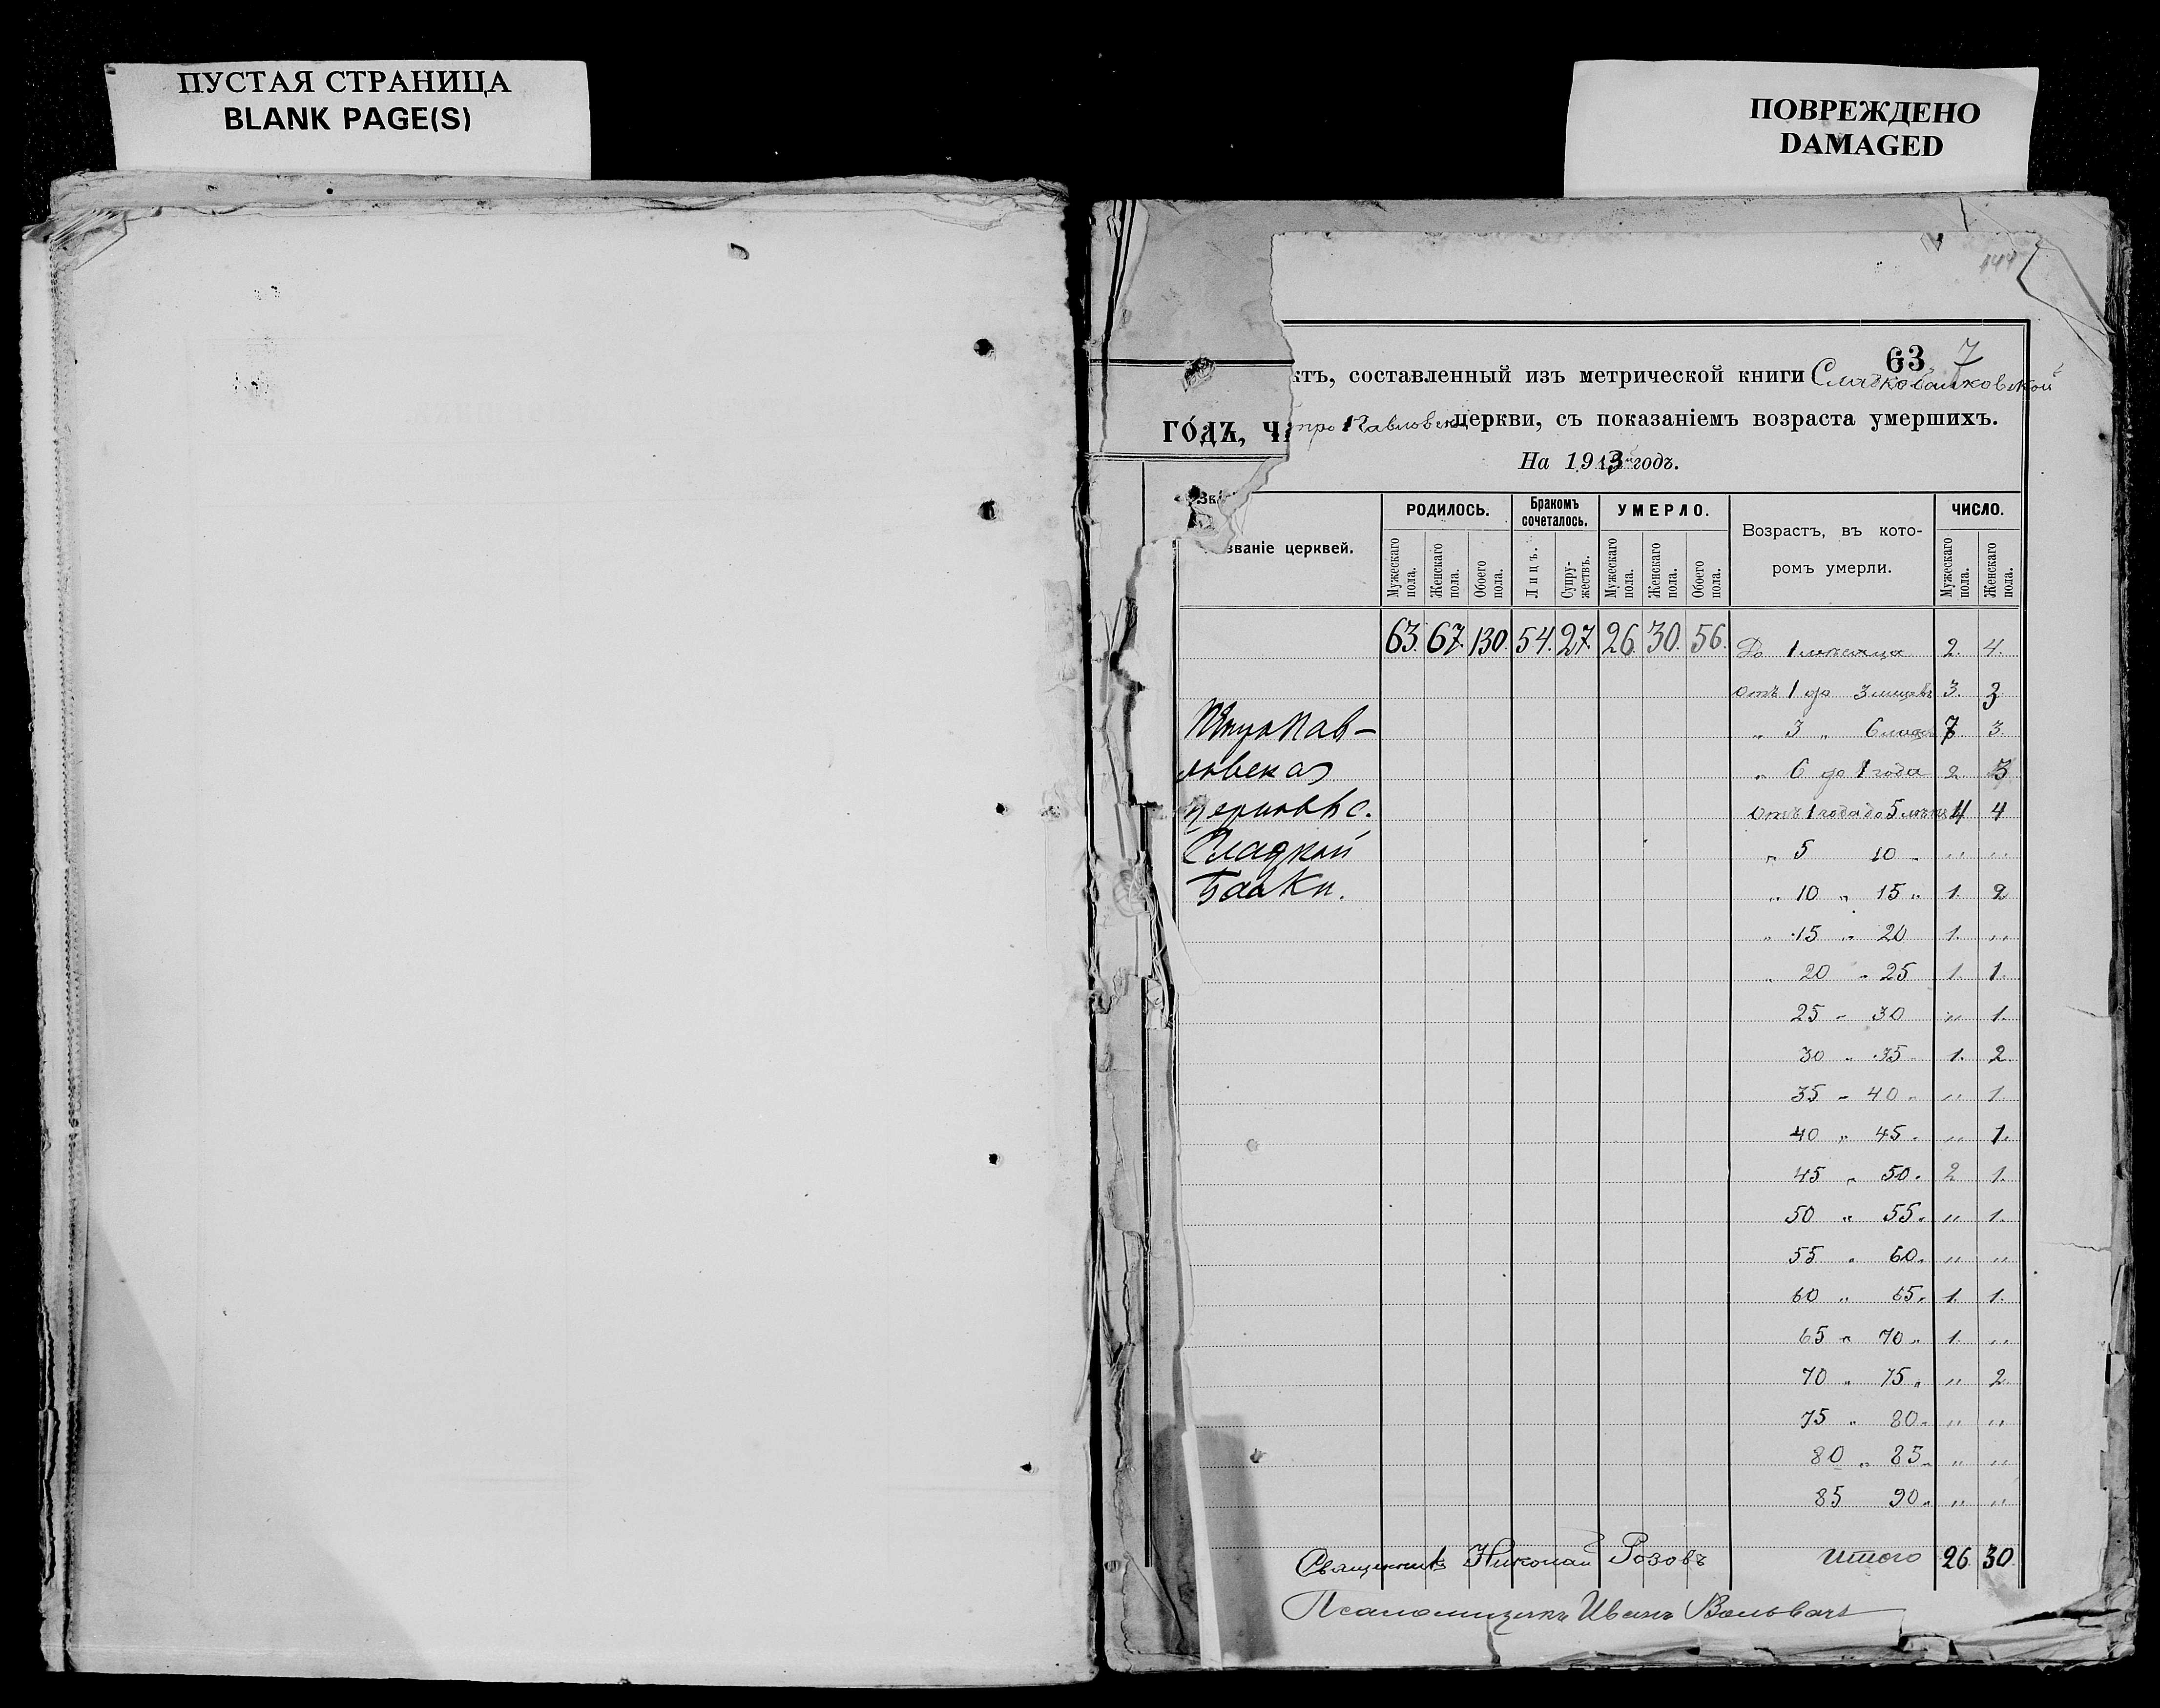 ПУСТАЯ СТРАНИЦА
BLANK PAGE(S)
ПОВРЕЖДЕНО
DAMAGED
144
63 7
ктъ, составленный изъ метрической книги Сладкобалковской
ГОДЪ, Ч
тро Павловск церкви, съ показаніемъ возраста умершихъ.
На 1913 годъ.
званіе церквей.
РОДИЛОСЬ.
Бракомъ сочеталось.
УМЕРЛО.
Возрастъ, въ кото-
ромъ умерли.
ЧИСЛО.
Мужескаго пола. Женскаго пола. Обоего пола. Лицъ. Супру-жествъ. Мужескаго пола. Женскаго пола. Обоего пола. Мужескаго пола. Женскаго пола.
63. 67. 130. 54. 27. 26. 30. 56. До 1 мѣсяца 2. 4.
Отъ 1 до 3 3. 3
Пав- „ 3 „ 6 7 3.
ловская „ 6 до 1 года 2 3
церковь с. Отъ 1 года до 5 4 4
Сладкой „ 5 10 „ „ „
Балки. „ 10 „ 15 „ 1. 2
„ 15 „ 20 1. „
„ 20 „ 25 1. 1.
25 „ 30 „ 1.
30 „ 35 1. 2.
35 „ 40 „ „ 1.
40 „ 45 „ „ 1.
45 „ 50 „ 2 1.
50 „ 55 „ „ 1.
55 „ 60 „ „ „
60 „ 65 „ 1. 1.
65 „ 70 „ 1. „
70 „ 75 „ „ 2
75 „ 80 „ „ „
80 „ 85 „ „ „
85 90 „ „ „
Священникъ Николай Розовъ Итого 26 30
Псаломщикъ Иванъ Вольвачъ